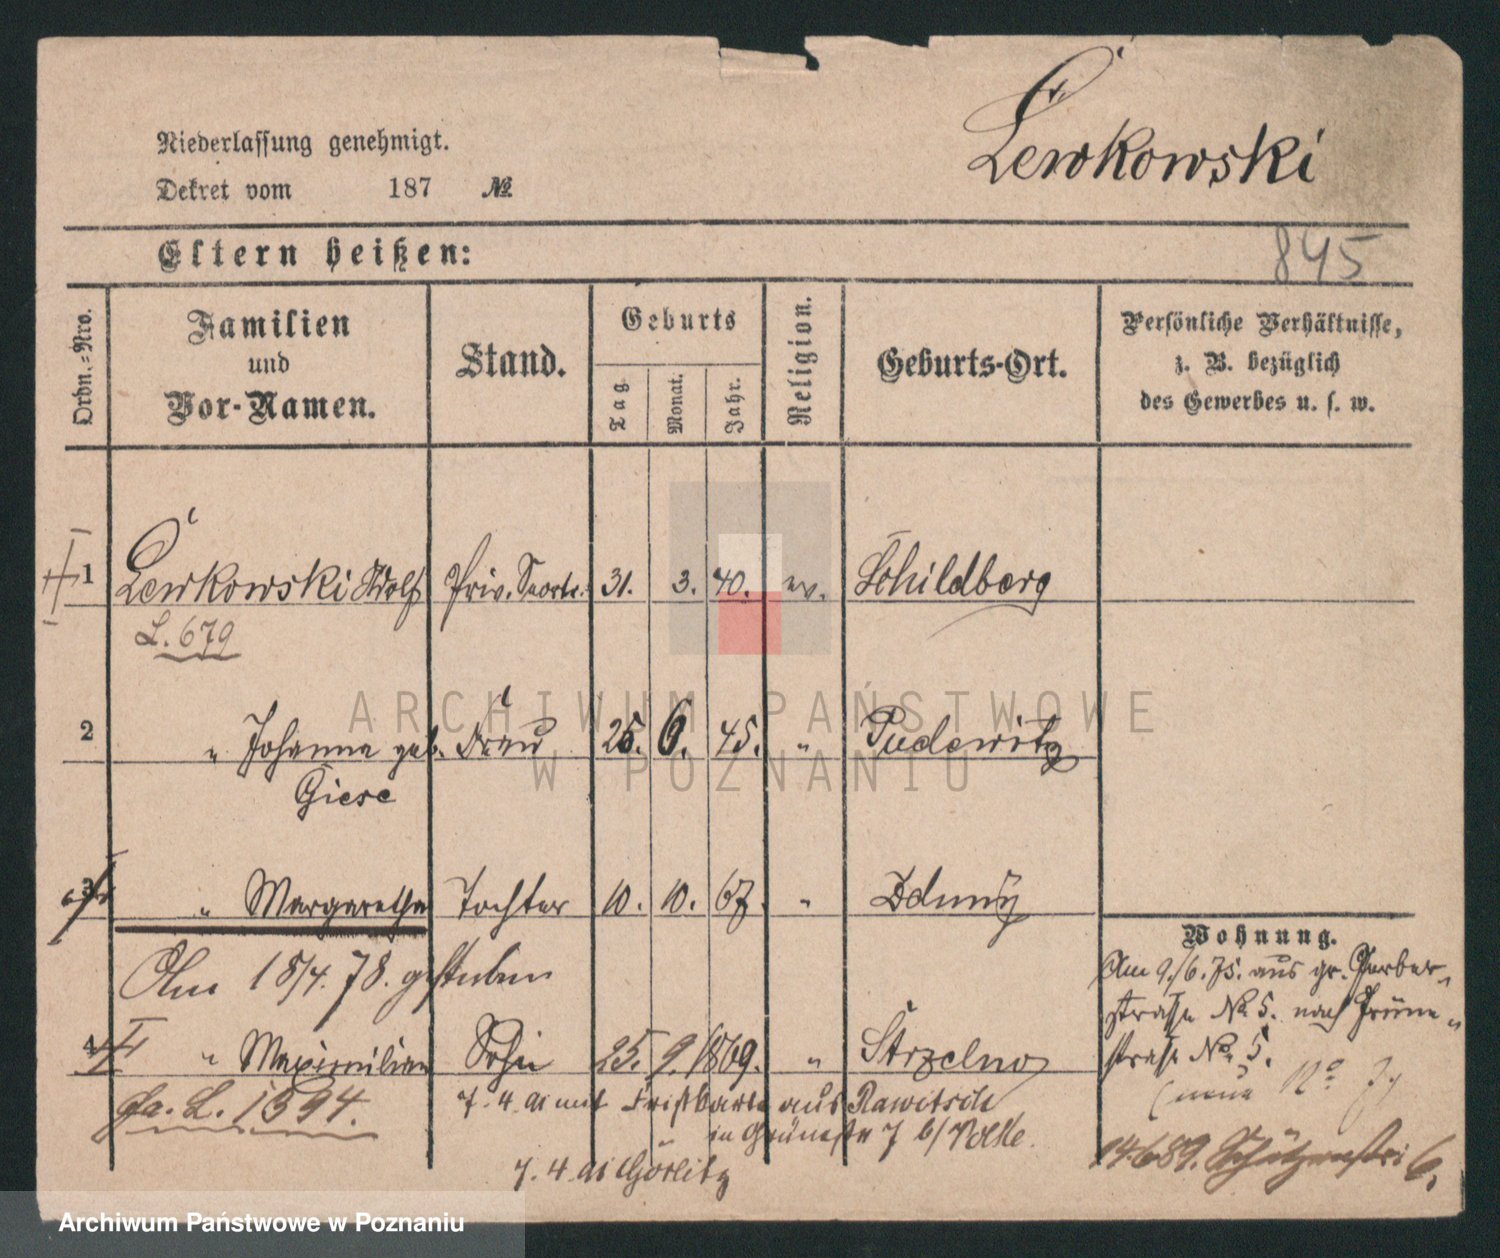 Lewkowski
Niederlassung genehmigt.
Dekret vom 187 №
Eltern heißen:
845
Ordn.=Nro.
Familien
und
Vor-Namen.
Stand.
Geburts
Tag.
Monat.
Jahr.
Religion.
Geburts-Ort.
Persönliche Verhältnisse,
z. B. bezüglich
des Gewerbes u. s. w.
1 Lewkowski Adolf Priv. 31. 3. 40. ev. Schildberg
L. 679
2 " Johanna geb. Frau 25. 6. 45. " Pudewitz
Giese
3 " Margaretha Tochter 10. 10. 67. " Zduny
Am 18/4. 78. gestorben
4 " Maximilian Sohn 25. 9. 1869. " Strzelno
fa. L. 1594.
7. 4. 91 mit aus Rawitsch
" in Grünestr 7 b/ Nolte.
7. 4. 91 Görlitz
Wohnung.
Am 9./6. 75. aus gr. Gerber-
straße No. 5. nach Grüne-
straße No. 5.
(neue No. 7)
14.6.89. Schützenstr. 6.
ARCHIWUM PAŃSTWOWE
W POZNANIU
Archiwum Państwowe w Poznaniu